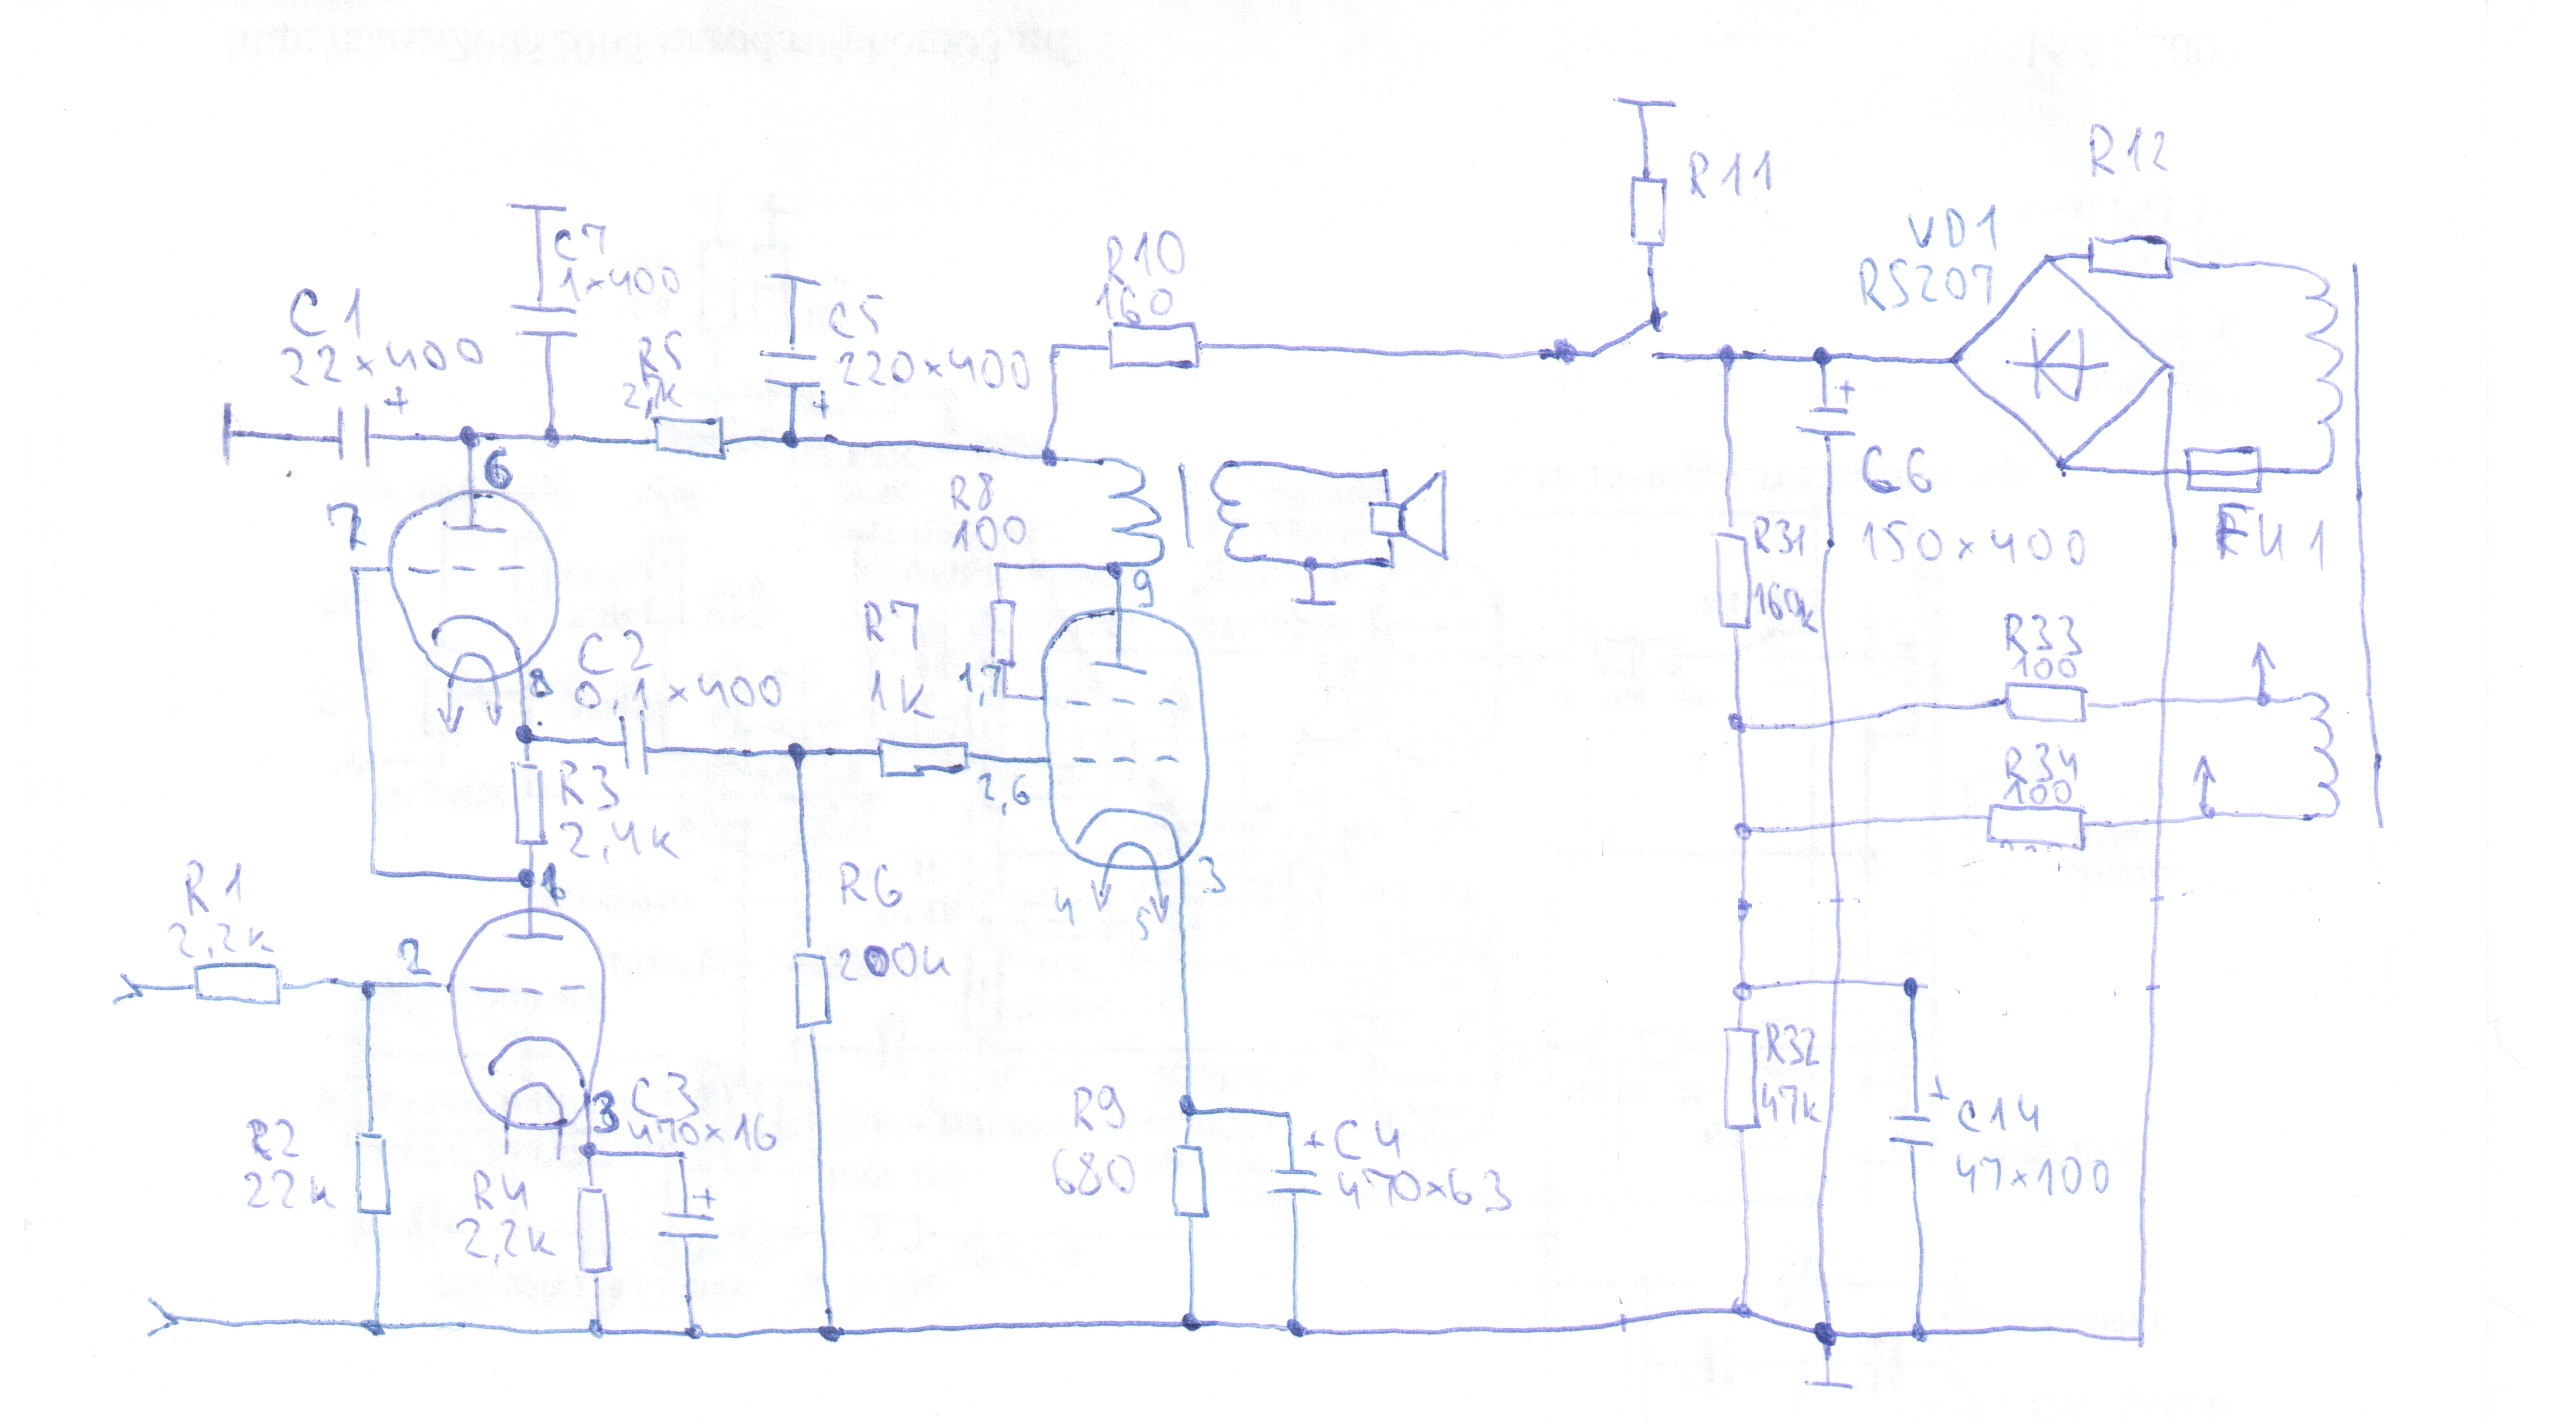 R11
R12
VD1
RS207
C7
1×400
R10
160
C1
22×400
+
R5
2,7k
C5
220×400
+
+
C6
150×400
FU1
6
7
R8
100
9
R31
160k
R7
1K
1,7
C2
0,1×400
8
R33
100
R3
2,4k
2,6
R34
100
1
R1
2,2k
2
R6
200k
4
5
3
R32
47k
3
C3
470×16
+
R2
22k
R4
2,2k
R9
680
+
C4
470×63
+
C14
47×100